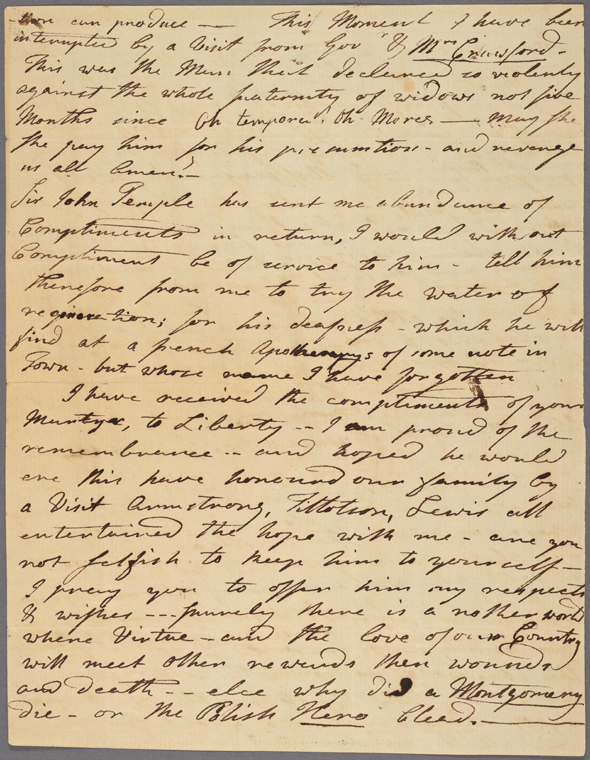 -tion can produce — This Moment I have been
interrupted by a Visit from Gov & Mrs Crawford —
This was the Man that declaired so violently
against the whole fraternity of widows not five
Months since Oh tempora! Oh Mores — May she
the pay him for his presumtion - and revenge
us all Amen! —
Sir John Temple has sent me abundance of
Compliments in return, I would without
Compliment be of service to him - tell him
therefore from me to try the water of
regineretion; for his deafness - which he will
find at a french Apothecarys of some note in
Town - but whose name I have forgotten
I have received the compliments of your
Martyr, to Liberty -- I am proud of the
remembrance -- and hoped he would
ere this have honourd our family by
a Visit Armstrong, Tillotson, Lewis all
entertained the hope with me - are you
not selfish to keep him to yourself —
I pray you to offer him my respects
& wishes --- surely there is a nother world
where Virtue - and the love of our Country
will meet other rewards then wounds
and death -- else why did a Montgomery
die - or the Polish Hero bleed. —